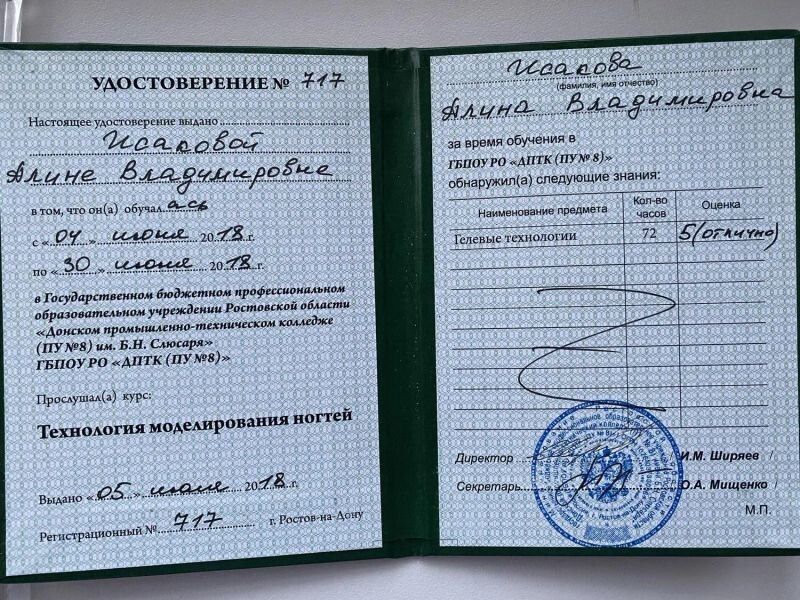 УДОСТОВЕРЕНИЕ № 717
Настоящее удостоверение выдано
Исаковой
Алине Владимировне
в том, что он(а) обучалась
с «04» июня 2018 г.
по «30» июня 2018 г.
в Государственном бюджетном профессиональном
образовательном учреждении Ростовской области
«Донском промышленно-техническом колледже
(ПУ №8) им. Б.Н. Слюсаря»
ГБПОУ РО «ДПТК (ПУ №8)»
Прослушал(а) курс:
Технология моделирования ногтей
Выдано «05» июля 2018 г.
Регистрационный № 717 г. Ростов-на-Дону
Исакова
(фамилия, имя отчество)
Алина Владимировна
за время обучения в
ГБПОУ РО «ДПТК (ПУ № 8)»
обнаружил(а) следующие знания:
Наименование предмета Кол-во часов Оценка
Гелевые технологии 72 5(отлично)
Директор И.М. Ширяев /
Секретарь О.А. Мищенко /
М.П.